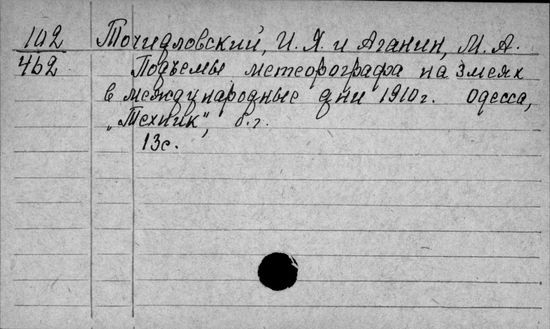 142 Точидловский, И. Я. и Аганин, М. А.
462 Подъемы метеорографа на змеях
в международные дни 1910 г. Одесса,
„Техник", б.г.
13с.